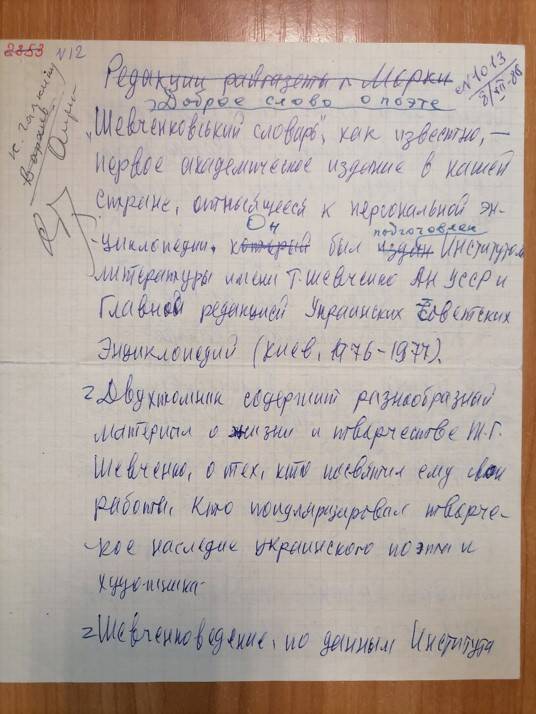 2353 N12
N1013
8/XII-86
Редакции райгазеты г. Мерки
Доброе слово о поэте
"Шевченковський словарь", как известно, —
первое академическое издание в нашей
стране, относящееся к персональной эн-
Он подготовлен
циклопедии. который был издан Институтом
литературы имени Т. Шевченко АН УССР и
Главной редакцией Украинских Советских
Энциклопедий (Киев, 1976-1977).
Двухтомник содержит разнообразный
материал о жизни и творчестве Т.Г.
Шевченко, о тех, кто посвятил ему свои
работы, кто популяризировал творче-
ское наследие украинского поэта и
художника.
Шевченковедение, по данным Института